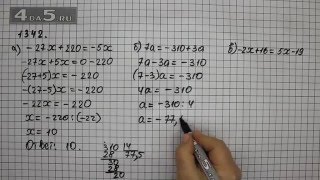 4da5.RU
1342.
а) -27x+220=-5x
-27x+5x=0-220
-(27-5)x=-220
-(27-5)x=-220
-22x=-220
x=-220:(-22)
x=10
Ответ: 10.
б) 7a=-310+3a
7a-3a=-310
(7-3)a=-310
4a=-310
a=-310:4
a=-77,
310 4
28 77,5
30
28
20
в) -2x+16=5x-19